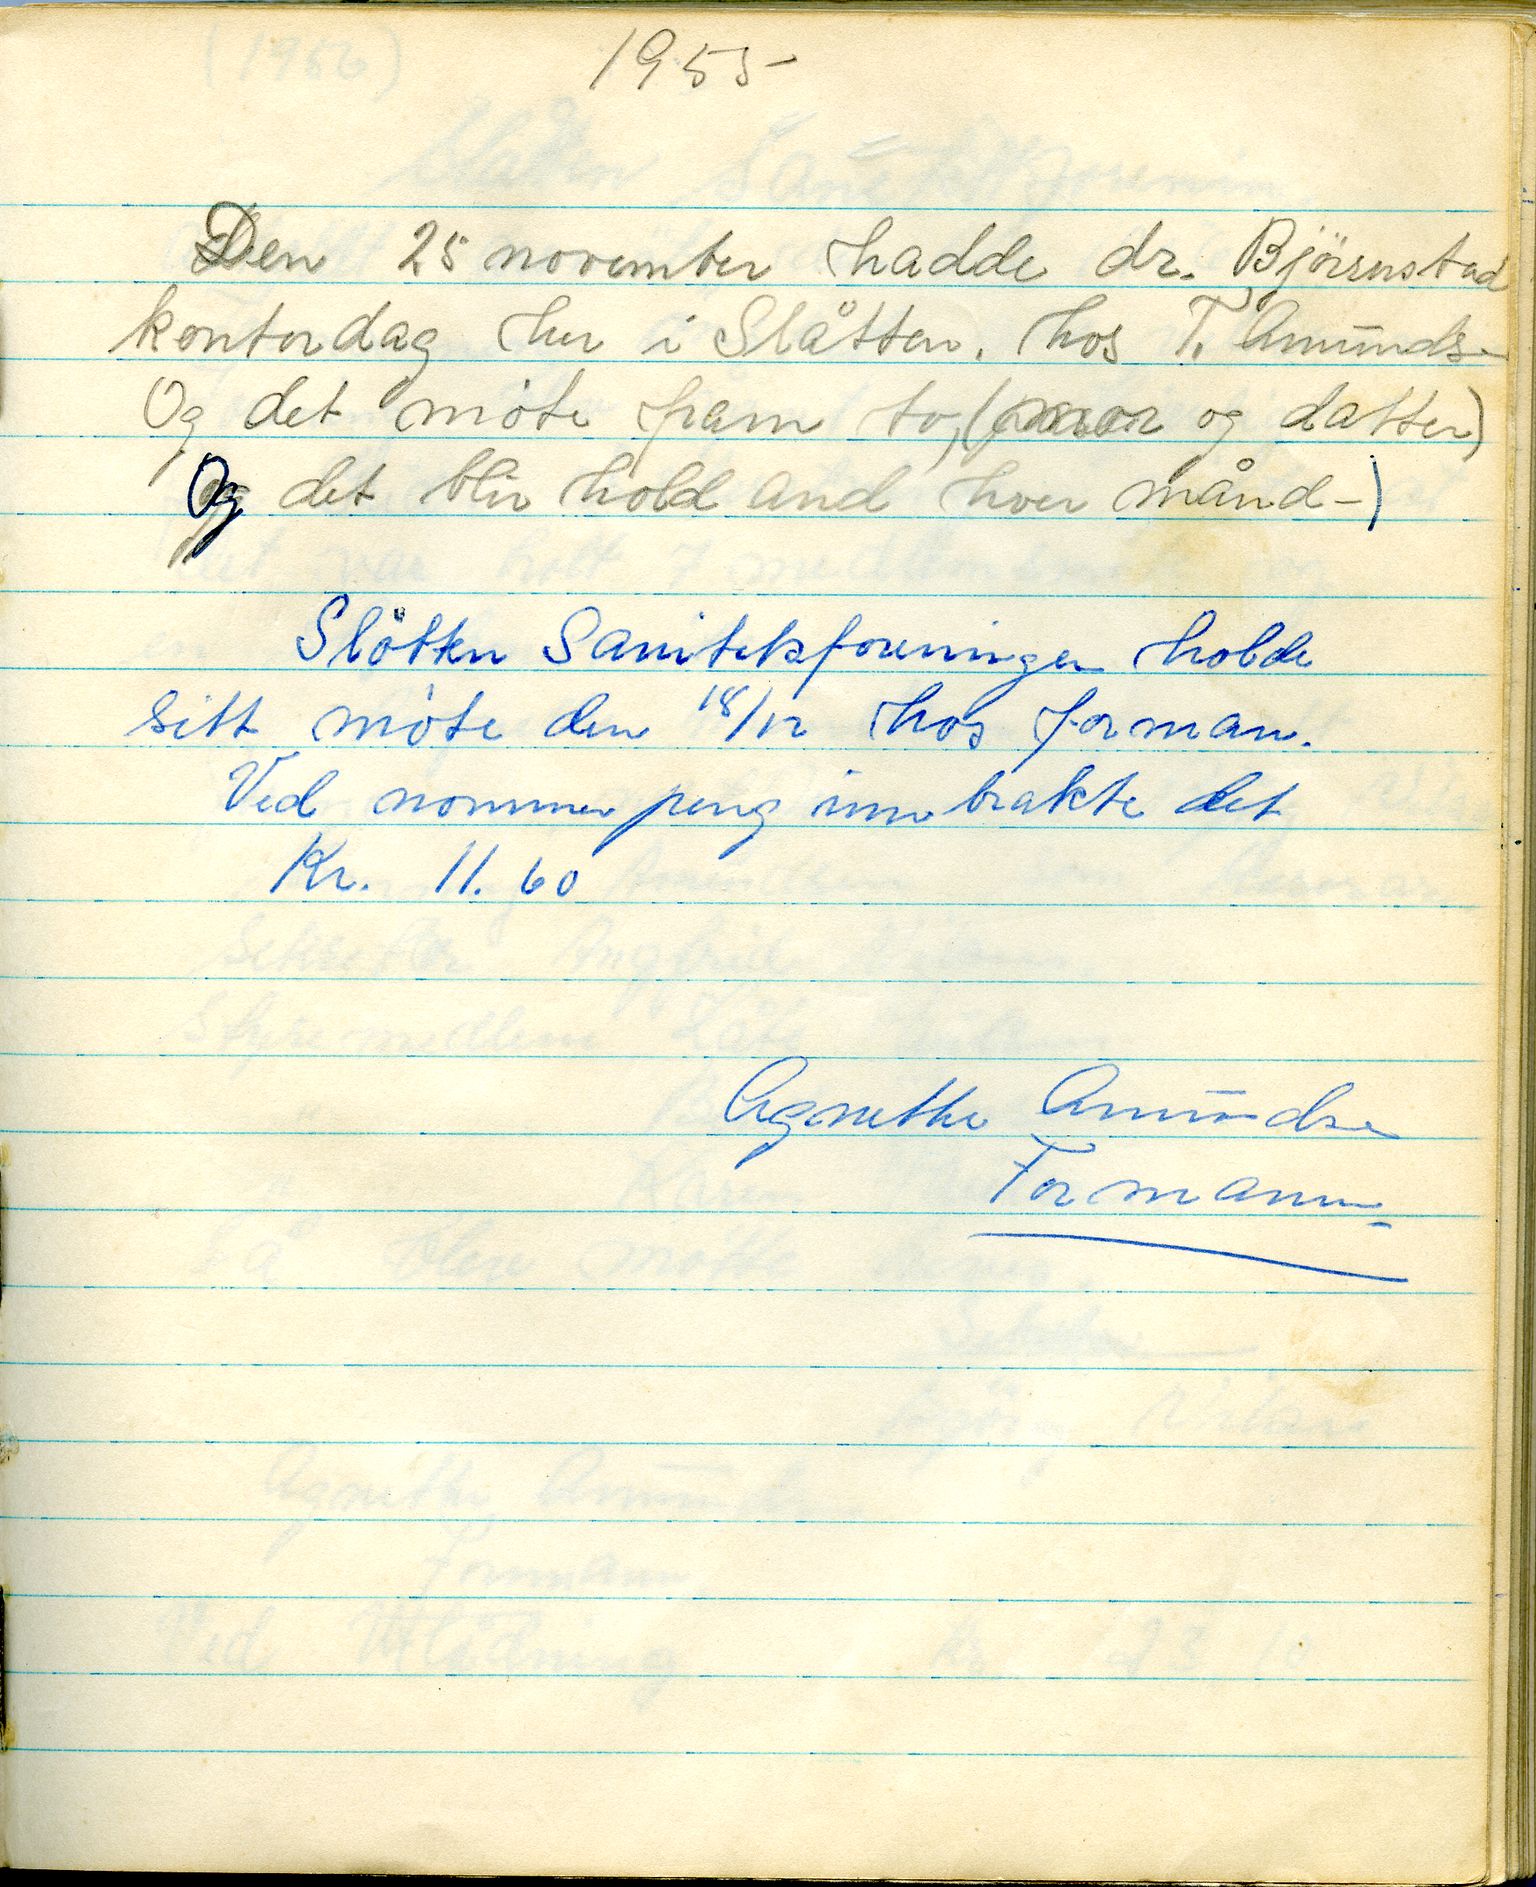 1955
Den 25 november hadde dr. Björnstad
kontordag her i Slåtten. hos T. Amundse
Og det möte fram to, (mor og datter)
Og det blir hold and hver månd-)
Slötten Sanitetsforeningen holde
sitt möte den 18/12 hos forman.
Ved nommer peng inn brakte det
Kr. 11.60
Agnethe Amundse
Formann